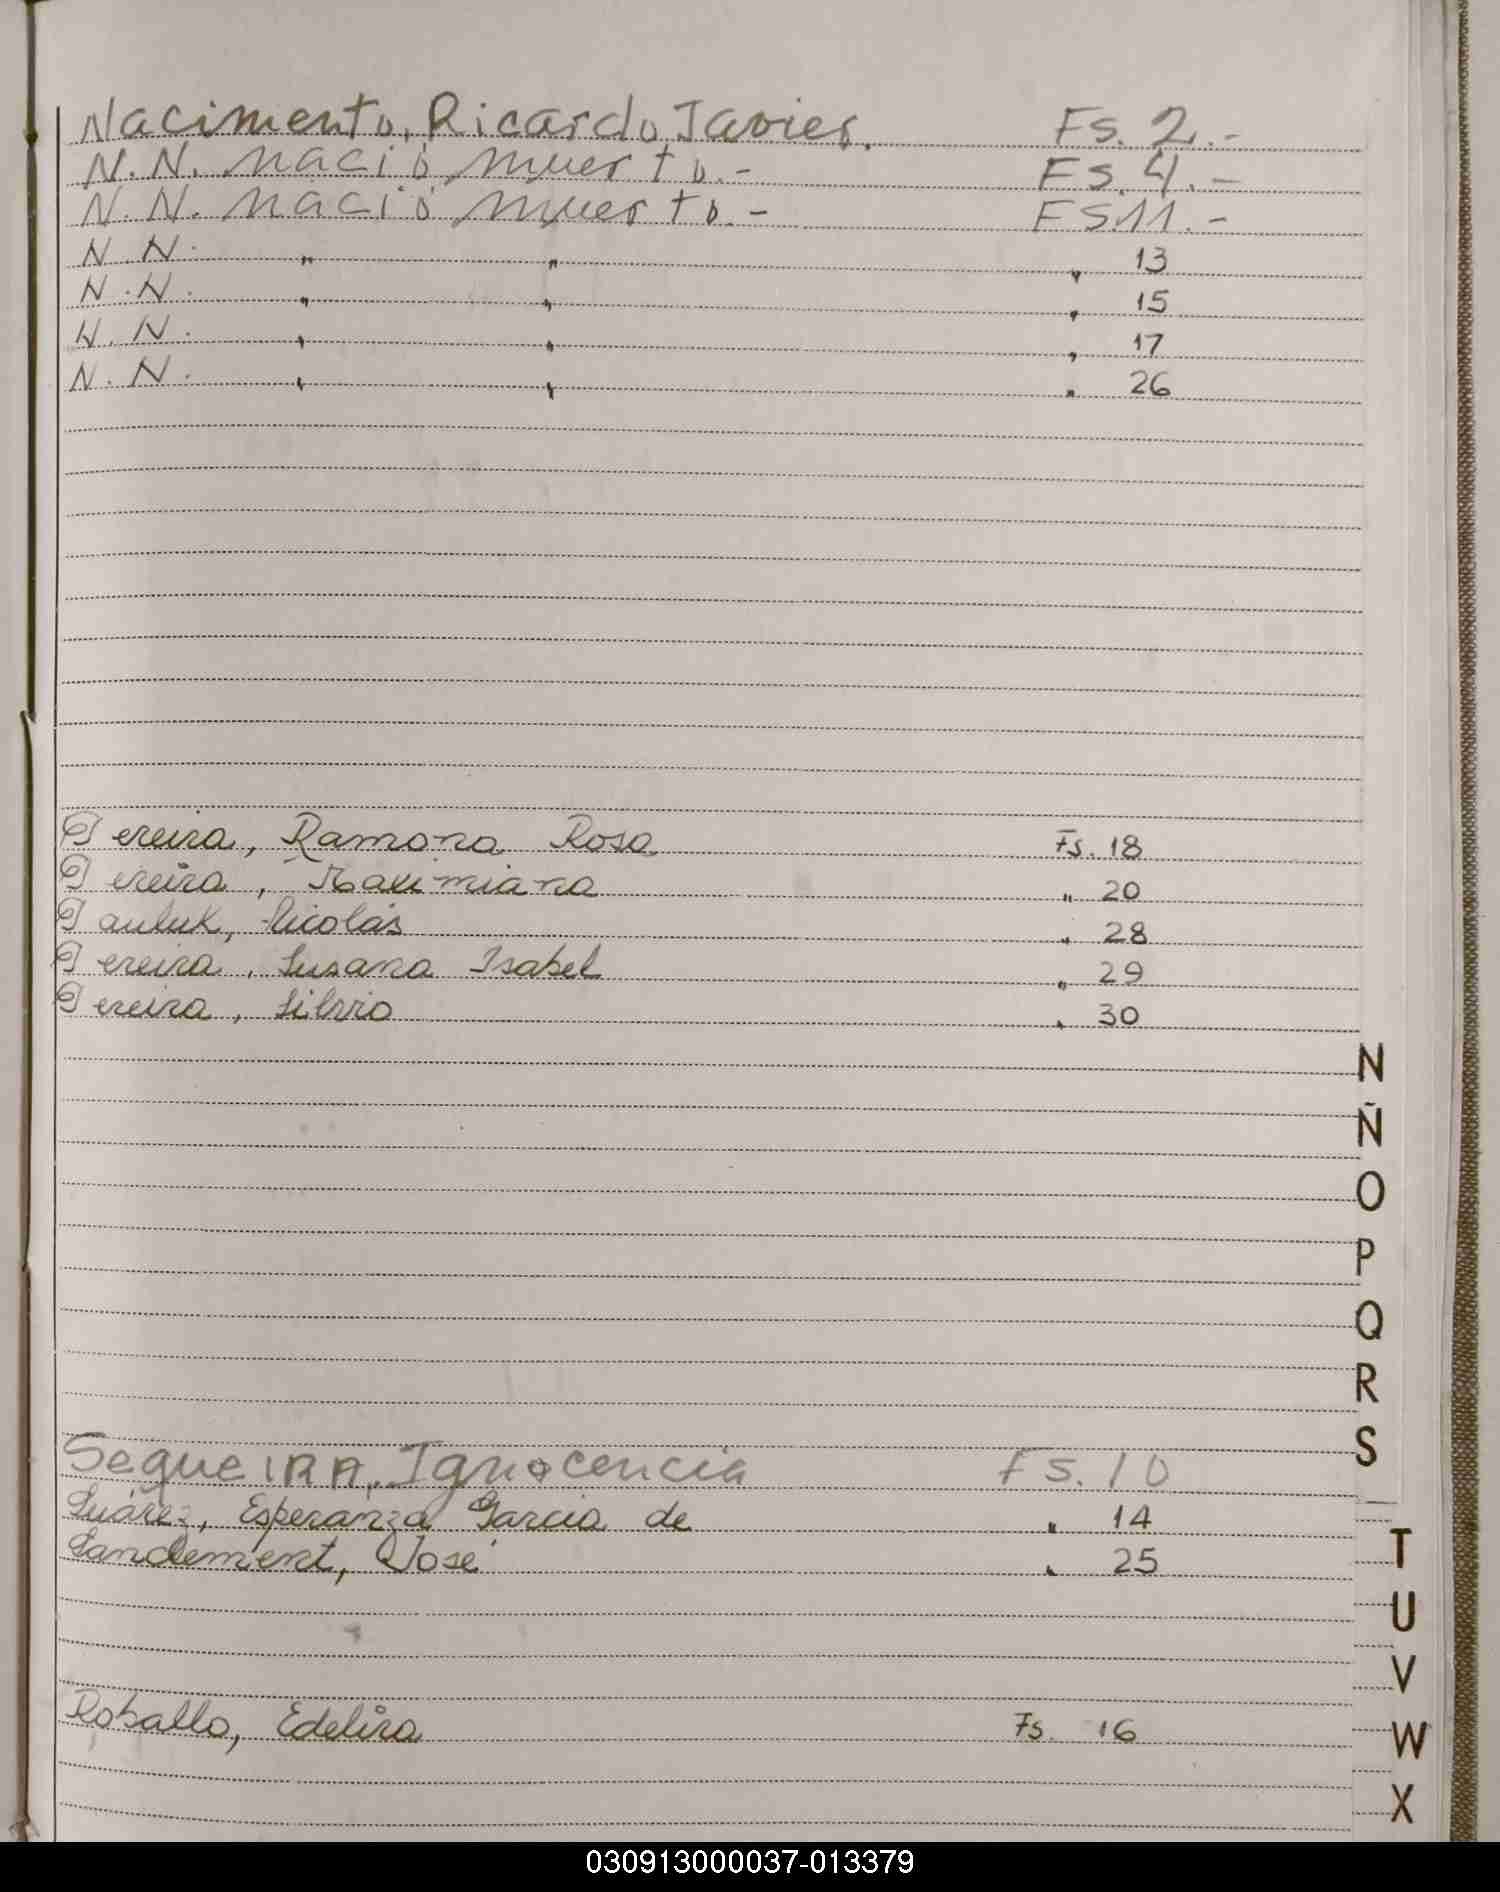 Nacimento, Ricardo Javier. Fs. 2.-
N.N. nació muerto.- Fs. 4.-
N.N. nació muerto.- FS.11.-
N.N. " " " 13
N.N. " " " 15
N.N. " " " 17
N.N. " " " 26
Pereira, Ramona Rosa Fs. 18
Pereira, Maximiana " 20
Pauluk, Nicolás " 28
Pereira, Susana Isabel " 29
Pereira, Silvio " 30
N
Ñ
O
P
Q
R
S
SequeIRA, Ignocencia Fs. 10
Suárez, Esperanza Garcia de " 14
Sandement, José " 25
T
U
V
Roballo, Edelira Fs. 16
W
X
030913000037-013379